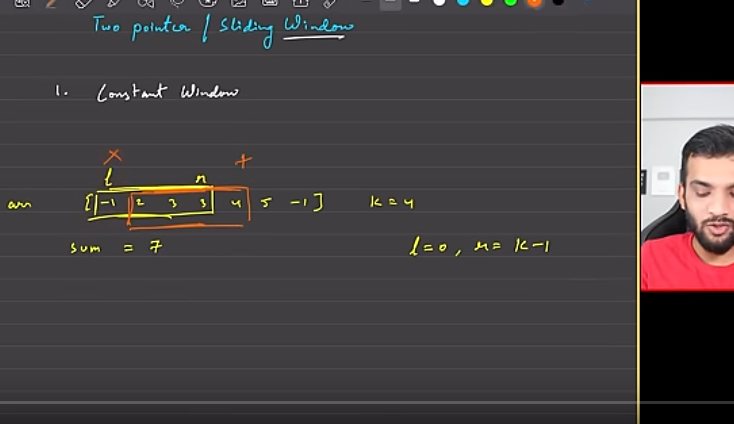 Two pointer / Sliding Window
1. Constant Window
X +
l r
arr [-1 2 3 3 4 5 -1] k=4
sum = 7 l=0, r= k-1